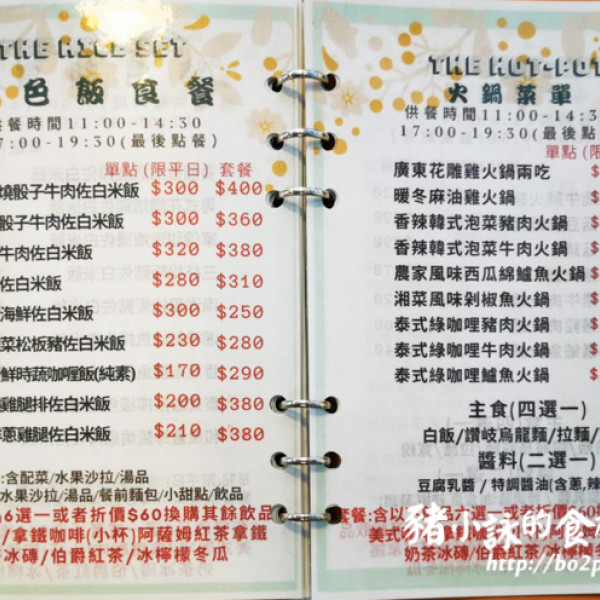 THE RICE SET
色飯食餐
供餐時間11:00-14:30
17:00-19:30(最後點餐)
單點(限平日) 套餐
燒骰子牛肉佐白米飯 $300 $400
骰子牛肉佐白米飯 $300 $360
牛肉佐白米飯 $320 $380
佐白米飯 $280 $310
海鮮佐白米飯 $300 $250
菜松板豬佐白米飯 $230 $280
鮮時蔬咖喱飯(純素) $170 $290
雞腿排佐白米飯 $200 $380
蔥雞腿佐白米飯 $210 $380
:含配菜/水果沙拉/湯品
水果沙拉/湯品/餐前麵包/小甜點/飲品
品6選一或者折價$60換購其餘飲品
/拿鐵咖啡(小杯)阿薩姆紅茶拿鐵
茶冰磚/伯爵紅茶/冰檸檬冬瓜
THE HOT-POT
火鍋菜單
供餐時間11:00-14:3
17:00-19:30(最後點
單點(限
廣東花雕雞火鍋兩吃 $
暖冬麻油雞火鍋 $
香辣韓式泡菜豬肉火鍋 $
香辣韓式泡菜牛肉火鍋 $
農家風味西瓜綿鱸魚火鍋 $
湘菜風味剁椒魚火鍋 $
泰式綠咖哩豬肉火鍋 $
泰式綠咖哩牛肉火鍋 $
泰式綠咖哩鱸魚火鍋 $
主食(四選一)
白飯/讚岐烏龍麵/拉麵/
醬料(二選一)
豆腐乳醬 / 特調醬油(含蔥,辣
套餐:含以
六選一或者折價$
美式
奶茶冰磚/伯爵紅茶/冰檸檬
豬小詠的食
http://bo2p